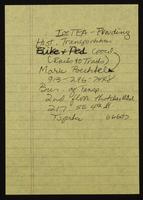 IsTEA - Funding
Hwt. Transportation
Bike & Ped Coord.
(Rails to Trails)
Mark Bechtel
913-296-7448
Bur. of Transp.
2nd floor Thatcher Bld
217 SE 4th St
Topeka 66603